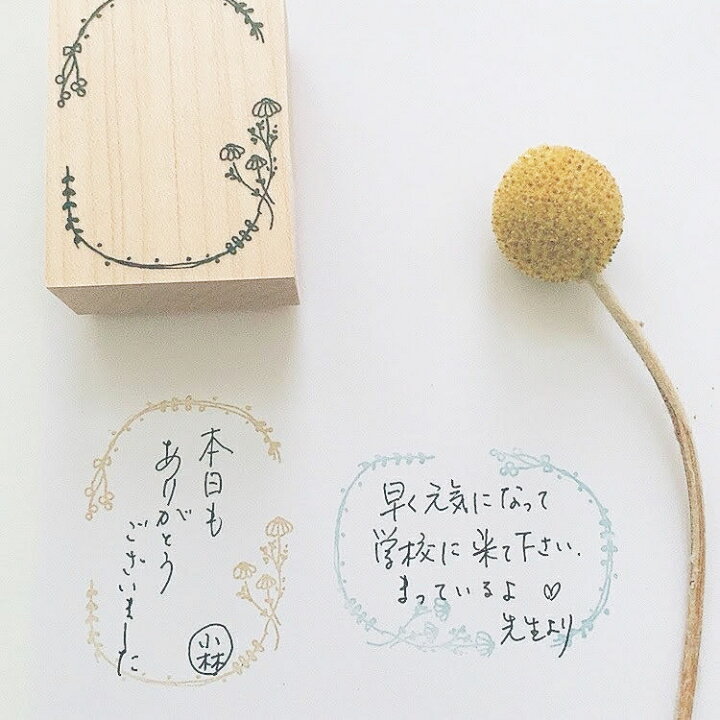 本日も
ありがとう
ございました
小林
早く元気になって
学校に来て下さい.
まっているよ ♡
先生より